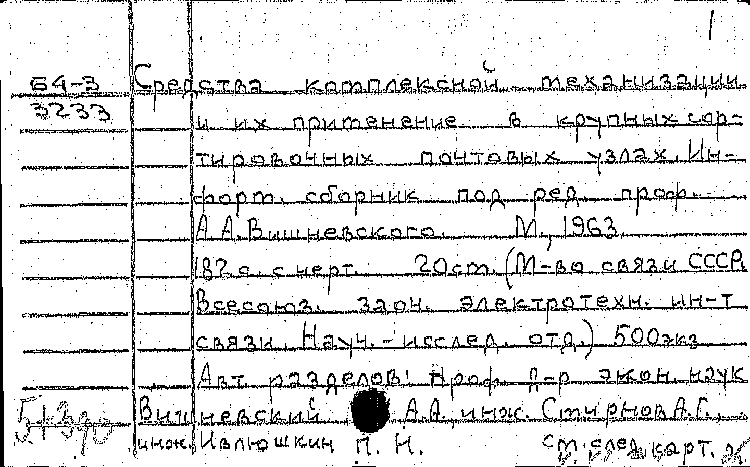 1
Б4-3 Средства комплексной механизации
3233 и их применение в крупных сор-
тировочных почтовых узлах. Ин-
форм. сборник под ред. проф.
А.А. Вишневского. М., 1963.
182 с. с черт. 20 см. (М-во связи СССР.
Всесоюз. заоч. электротехн. ин-т
связи. Науч.-исслед. отд.) 500 экз
Авт. разделов: Проф. д-р экон. наук
Вишневский А.А., инж. Смирнов А.Г.,
инж. Ивлюшкин П. Н. см. след. карт.